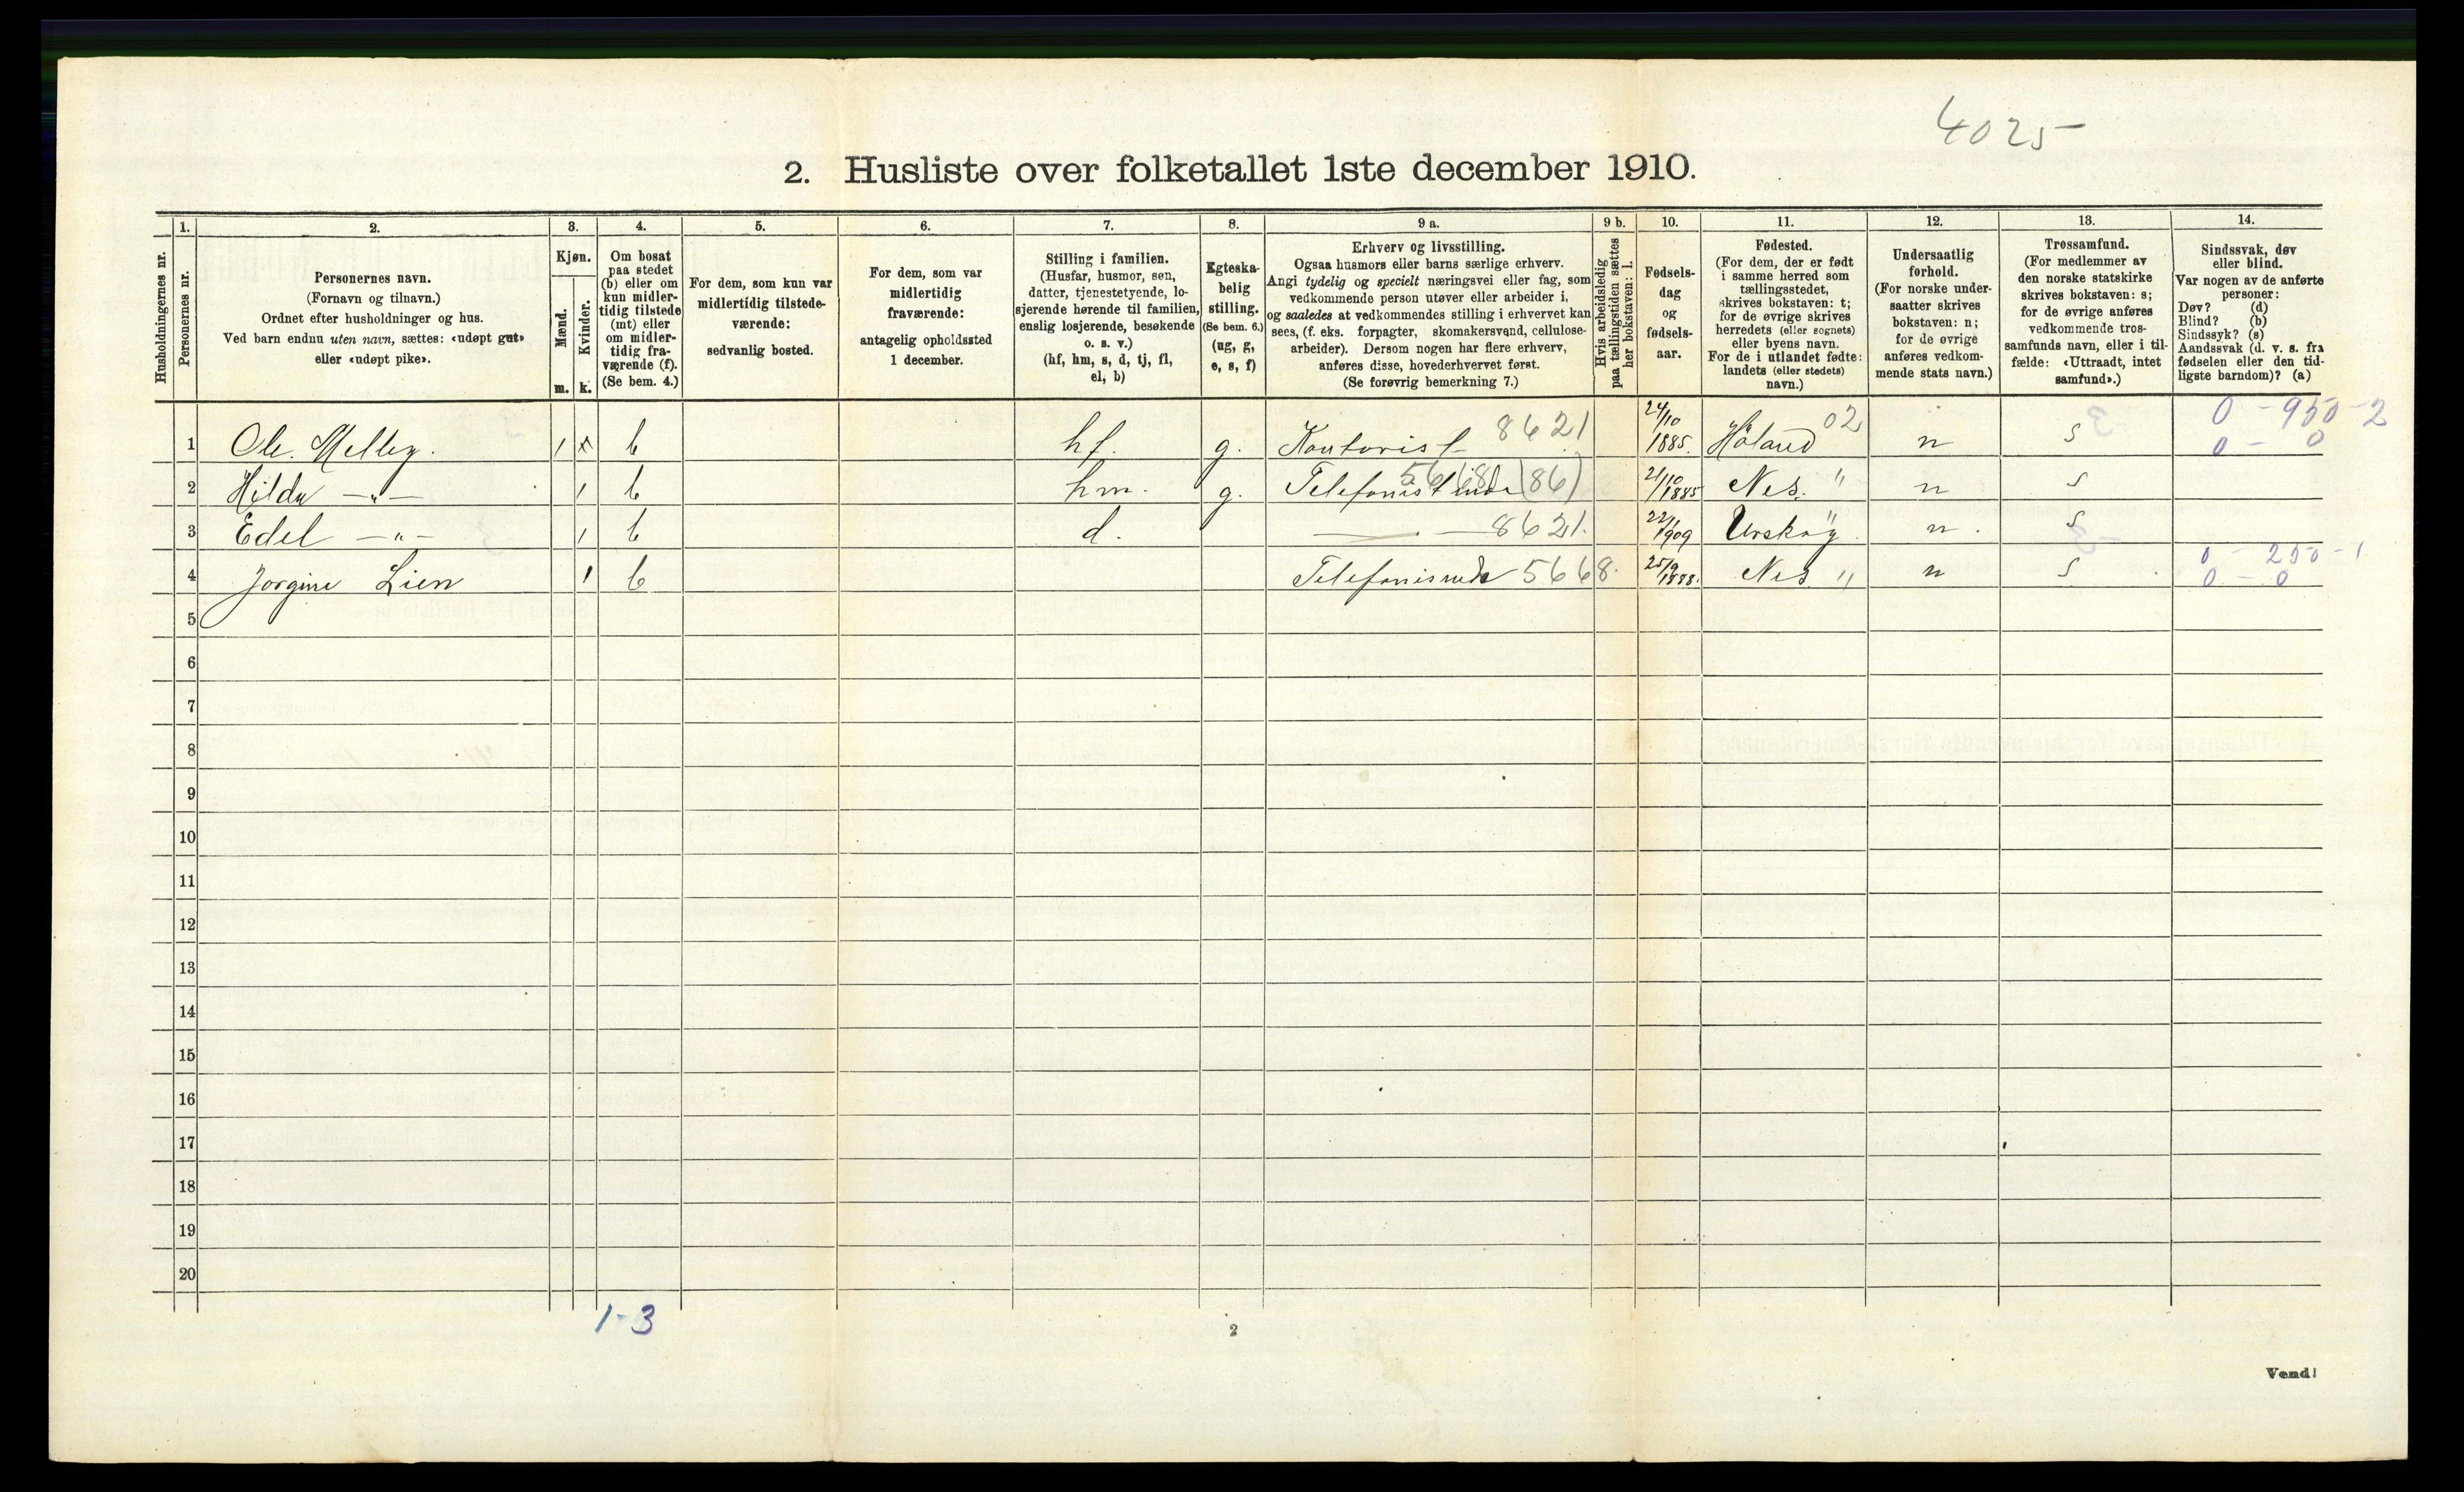 4025
2. Husliste over folketallet 1ste december 1910.
Husholdningernes nr.
1.
Personernes nr.
2.
Personernes navn.
(Fornavn og tilnavn.)
Ordnet efter husholdninger og hus.
Ved barn endnu uten navn, sættes: «udøpt gut»
eller «udøpt pike».
3.
Kjøn.
Mænd.
m.
Kvinder.
k.
4.
Om bosat
paa stedet
(b) eller om
kun midler-
tidig tilstede
(mt) eller
om midler-
tidig fra-
værende (f).
(Se bem. 4.)
5.
For dem, som kun var
midlertidig tilstede-
værende:
sedvanlig bosted.
6.
For dem, som var
midlertidig
fraværende:
antagelig opholdssted
1 december.
7.
Stilling i familien.
(Husfar, husmor, sen,
datter, tjenestetyende, lo-
sjerende hørende til familien,
enslig losjerende, besøkende
o. s. v.)
(hf, hm, s, d, tj, fl,
el, b)
8.
Egteska-
belig
stilling.
(Se bem. 6.)
(ug, g,
e, s, f)
9 a.
Erhverv og livsstilling.
Ogsaa husmors eller barns særlige erhverv.
Angi tydelig og specielt næringsvei eller fag, som
vedkommende person utøver eller arbeider i,
og saaledes at vedkommendes stilling i erhvervet kan
sees, (f. eks. forpagter, skomakersvend, cellulose-
arbeider). Dersom nogen har flere erhverv,
anføres disse, hovederhvervet først.
(Se forøvrig bemerkning 7.)
9 b.
Hvis arbeidsledig
paa tællingstiden sættes
her bokstaven: l.
10.
Fødsels-
dag
og
fødsels-
aar.
11.
Fødested.
(For dem, der er født
i samme herred som
tællingsstedet,
skrives bokstaven: t;
for de øvrige skrives
herredets (eller sognets)
eller byens navn.
For de i utlandet fødte:
landets (eller stedets)
navn.)
12.
Undersaatlig
forhold.
(For norske under-
saatter skrives
bokstaven: n;
for de øvrige
anføres vedkom-
mende stats navn.)
13.
Trossamfund.
(For medlemmer av
den norske statskirke
skrives bokstaven: s;
for de øvrige anføres
vedkommende tros-
samfunds navn, eller i til-
fælde: «Uttraadt, intet
samfund».)
14.
Sindssvak, døv
eller blind.
Var nogen av de anførte
personer:
Døv? (d)
Blind? (b)
Sindssyk? (s)
Aandssvak (d. v. s. fra
fødselen eller den tid-
ligste barndom)? (a)
1 Ole. Melby. 1 x b hf. g. Kontorist 8621 24/10 1885. Høland 02 n s 0 - 950 - 2
0 - 0
2 Hilda —"— 1 b hm. g. Telefonistinde 56(68)(86) 21/10 1885 Nes. " n s
3 Edel —"— 1 b d. — 8621. 22/1 1909 Urskog " n. s
4 Jorgine Lien 1 b 5668. 25/9 1888. Nes " n s 0 - 250 - 1
0 - 0
5
6
7
8
9
10
11
12
13
14
15
16
17
18
19
20
1-3
2
Vend!